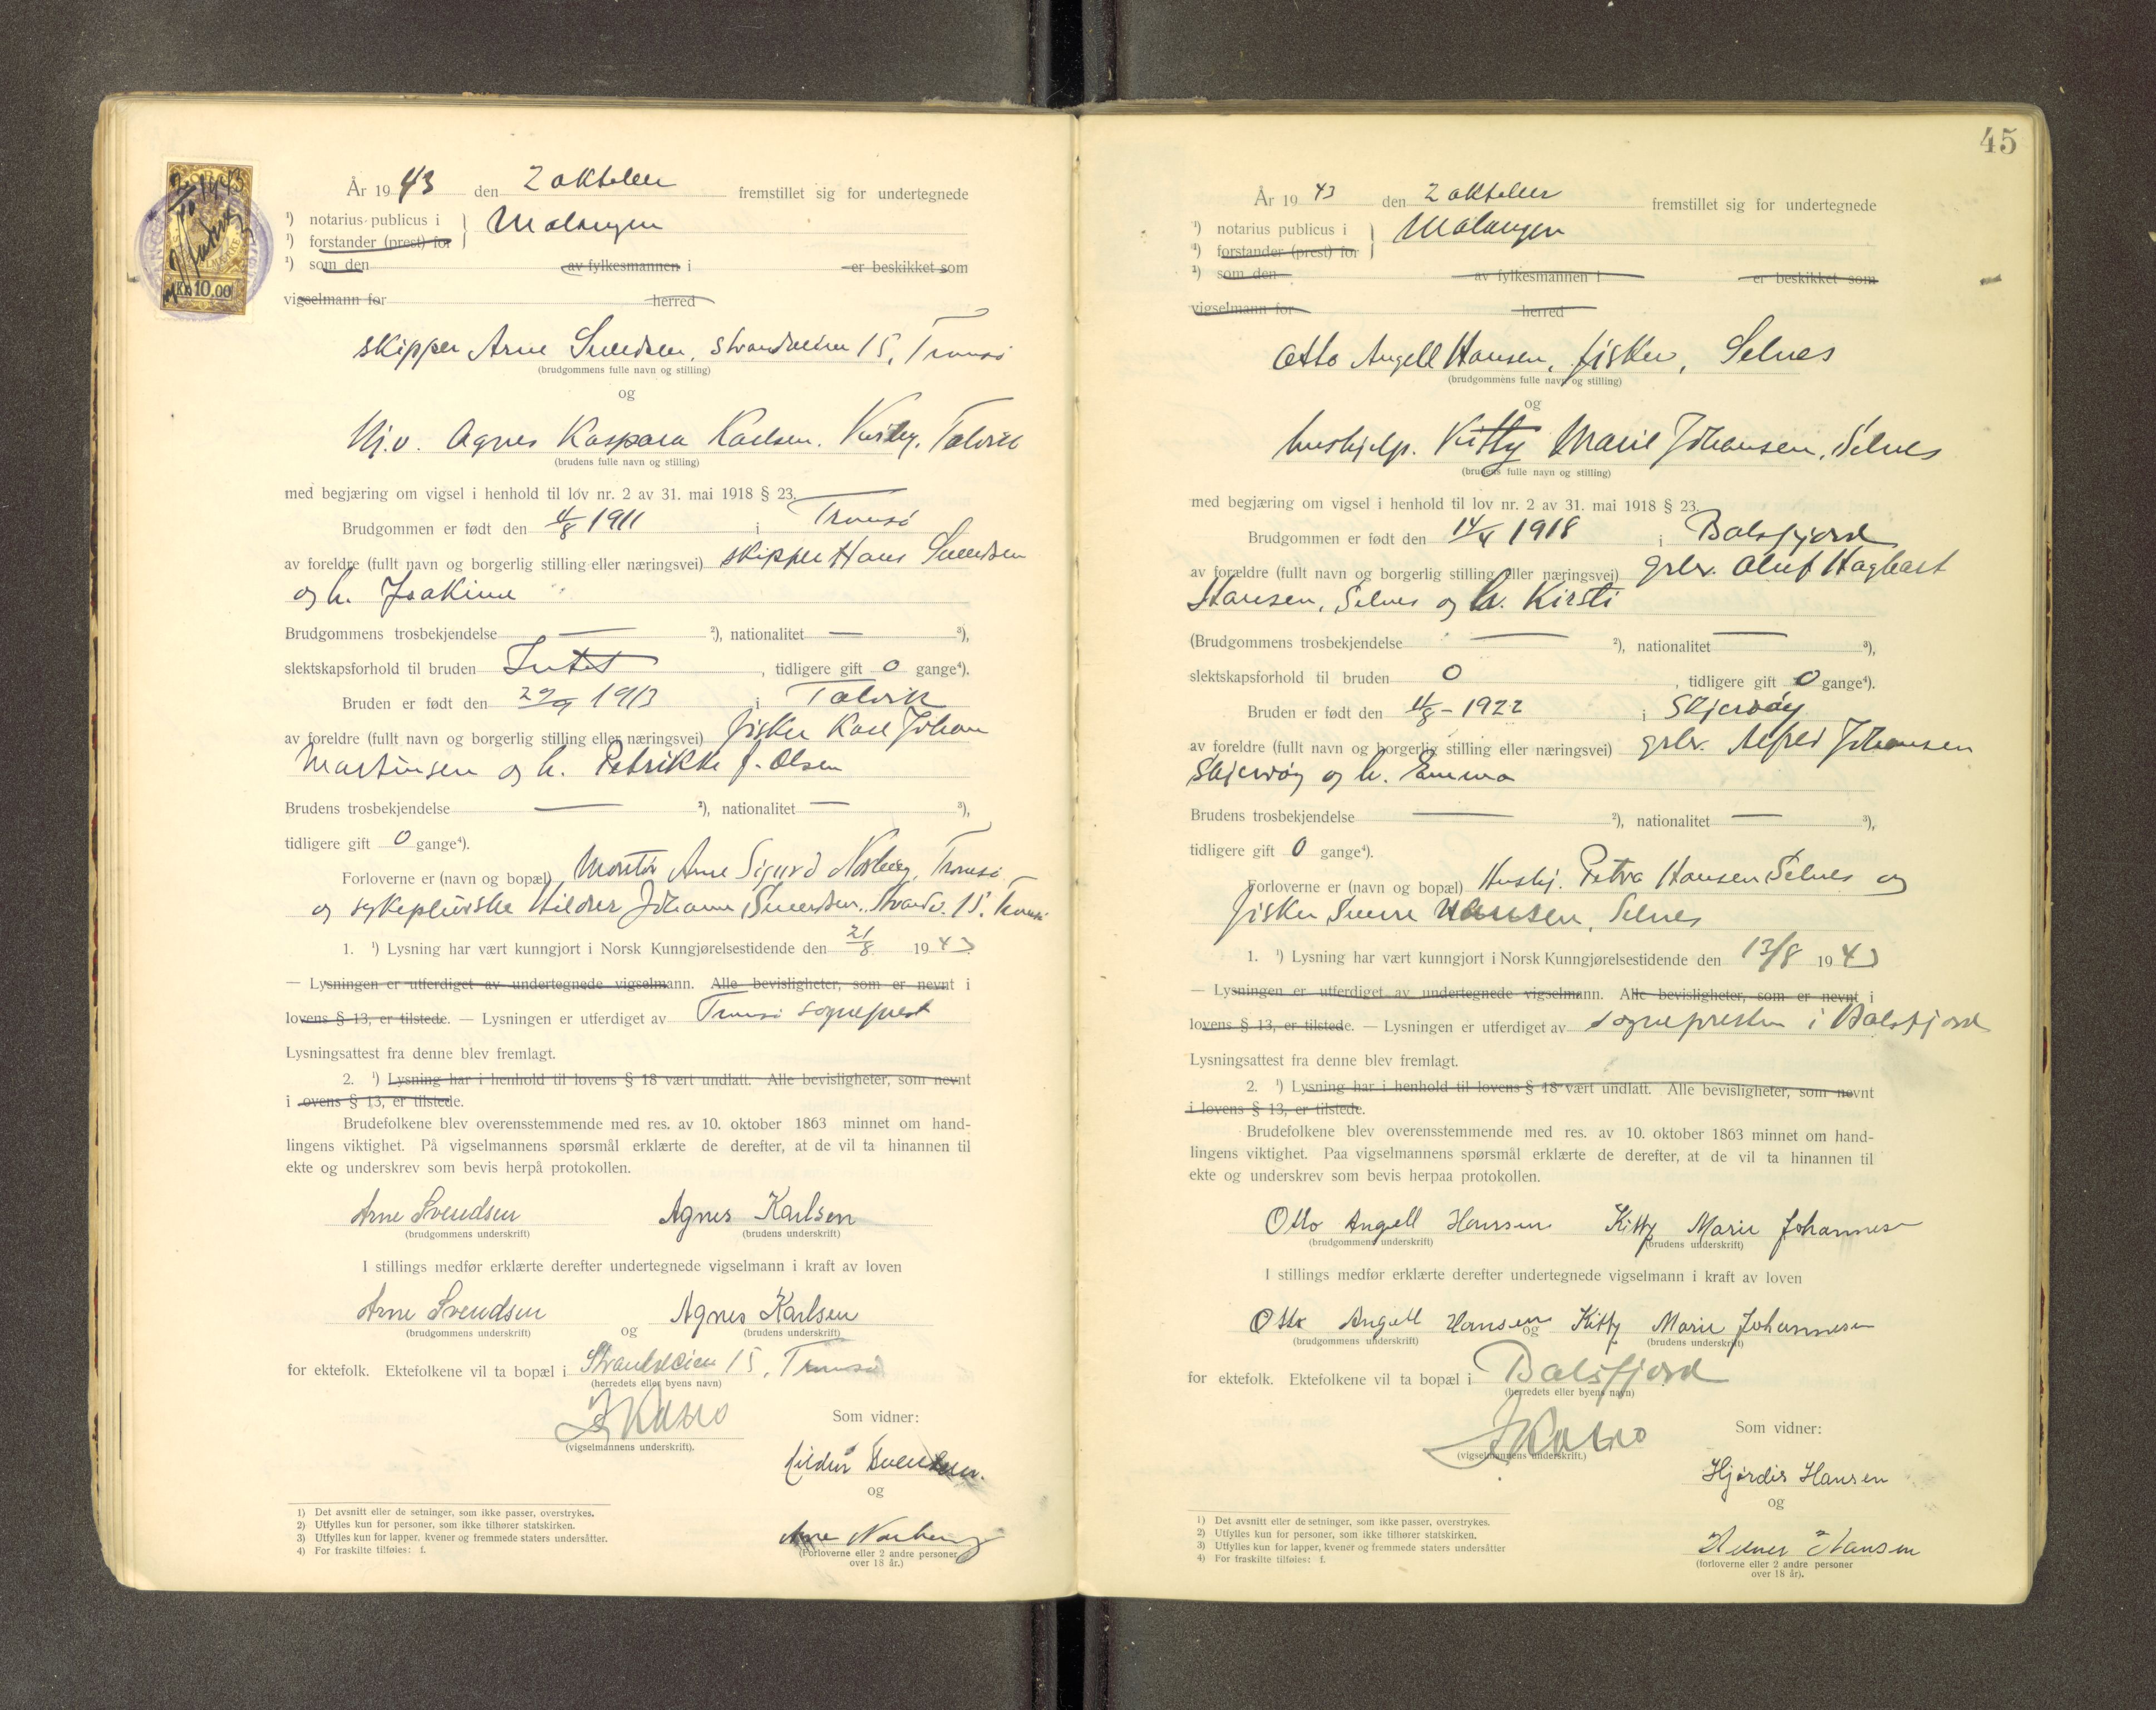 NORGE
2/10 1943
KR 10.00
År 1943 den 2 oktober fremstillet sig for undertegnede
¹) notarius publicus i } Malangen
¹) forstander (prest) for
¹) som den av fylkesmannen i er beskikket som
vigselmann for herred
skipper Arne Svendsen, Strandveien 15, Tromsø
(brudgommens fulle navn og stilling)
og
Hj.v. Agnes Kaspara Karlsen. Talvik
(brudens fulle navn og stilling)
med begjæring om vigsel i henhold til lov nr. 2 av 31. mai 1918 § 23.
Brudgommen er født den 4/8 1911 i Tromsø
av foreldre (fullt navn og borgerlig stilling eller næringsvei) skipper Hans Svendsen
og h. Joakime
Brudgommens trosbekjendelse — ²), nationalitet — ³),
slektskapsforhold til bruden Intet, tidligere gift 0 gange⁴).
Bruden er født den 29/9 1913 i Talvik
av foreldre (fullt navn og borgerlig stilling eller næringsvei) fisker Karl Johan
Martinsen og h. Petrikke f. Olsen
Brudens trosbekjendelse — ²), nationalitet — ³),
tidligere gift 0 gange⁴).
Forloverne er (navn og bopæl) Montør Arne Sigurd Norberg, Tromsø
og sykepleierske Hildur Johanne Svendsen, Strandv. 15, Tromsø
1. ¹) Lysning har vært kunngjort i Norsk Kunngjørelsestidende den 21/8 1943
— Lysningen er utferdiget av undertegnede vigselmann. Alle bevisligheter, som er nevnt i
lovens § 13, er tilstede. — Lysningen er utferdiget av Tromsø sogneprest
Lysningsattest fra denne blev fremlagt.
2. ¹) Lysning har i henhold til lovens § 18 vært undlatt. Alle bevisligheter, som nevnt
i ovens § 13, er tilstede.
Brudefolkene blev overensstemmende med res. av 10. oktober 1863 minnet om hand-
lingens viktighet. På vigselmannens spørsmål erklærte de derefter, at de vil ta hinannen til
ekte og underskrev som bevis herpå protokollen.
Arne Svendsen Agnes Karlsen
(brudgommens underskrift) (brudens underskrift)
I stillings medfør erklærte derefter undertegnede vigselmann i kraft av loven
Arne Svendsen og Agnes Karlsen
(brudgommens underskrift) (brudens underskrift)
for ektefolk. Ektefolkene vil ta bopæl i Strandveien 15, Tromsø
(herredets eller byens navn)
(vigselmannens underskrift).
Som vidner:
Hildur Svendsen.
og
Arne Norberg
(Forloverne eller 2 andre personer
over 18 år.)
1) Det avsnitt eller de setninger, som ikke passer, overstrykes.
2) Utfylles kun for personer, som ikke tilhører statskirken.
3) Utfylles kun for lapper, kvener og fremmede staters undersåtter.
4) For fraskilte tilføies: f.
45
År 1943 den 2 oktober fremstillet sig for undertegnede
¹) notarius publicus i } Malangen
¹) forstander (prest) for
¹) som den av fylkesmannen i er beskikket som
vigselmann for herred
Otto Angell Hansen, fisker, Selnes
(brudgommens fulle navn og stilling)
og
hushjelp. Kitty Marie Johansen, Selnes
(brudens fulle navn og stilling)
med begjæring om vigsel i henhold til lov nr. 2 av 31. mai 1918 § 23.
Brudgommen er født den 14/4 1918 i Balsfjord
av forældre (fullt navn og borgerlig stilling eller næringsvei) grbr. Oluf Hagbart
Hansen, Selnes og h. Kirsti
(Brudgommens trosbekjendelse — ²), nationalitet — ³),
slektskapsforhold til bruden 0, tidligere gift 0 gange⁴).
Bruden er født den 4/8 - 1922 i Skjervøy
av foreldre (fullt navn og borgerlig stilling eller næringsvei) grbr. Alfred Johansen
Skjervøy og h. Emma
Brudens trosbekjendelse — ²), nationalitet — ³),
tidligere gift 0 gange⁴).
Forloverne er (navn og bopæl) Hushj. Petra Hansen Selnes og
fisker Sverre Hansen, Selnes
1. ¹) Lysning har vært kunngjort i Norsk Kunngjørelsestidende den 13/8 1943
— Lysningen er utferdiget av undertegnede vigselmann. Alle bevisligheter, som er nevnt i
lovens § 13, er tilstede. — Lysningen er utferdiget av sognepresten i Balsfjord
Lysningsattest fra denne blev fremlagt.
2. ¹) Lysning har i henhold til lovens § 18 vært undlatt. Alle bevisligheter, som nevnt
i lovens § 13, er tilstede.
Brudefolkene blev overensstemmende med res. av 10. oktober 1863 minnet om hand-
lingens viktighet. Paa vigselmannens spørsmål erklærte de derefter, at de vil ta hinannen til
ekte og underskrev som bevis herpaa protokollen.
Otto Angell Hansen Kitty Marie Johannesen
(brudgommens underskrift) (brudens underskrift)
I stillings medfør erklærte derefter undertegnede vigselmann i kraft av loven
Otto Angell Hansen og Kitty Marie Johannesen
(brudgommens underskrift) (brudens underskrift)
for ektefolk. Ektefolkene vil ta bopæl i Balsfjord
(herredets eller byens navn)
(vigselmannens underskrift.)
Som vidner:
Hjørdis Hansen
og
Hansen
(forloverne eller 2 andre personer
over 18 år).
1) Det avsnitt eller de setninger, som ikke passer, overstrykes.
2) Utfylles kun for personer, som ikke tilhører statskirken.
3) Utfylles kun for lapper, kvener og fremmede staters undersåtter
4) For fraskilte tilføies: f.